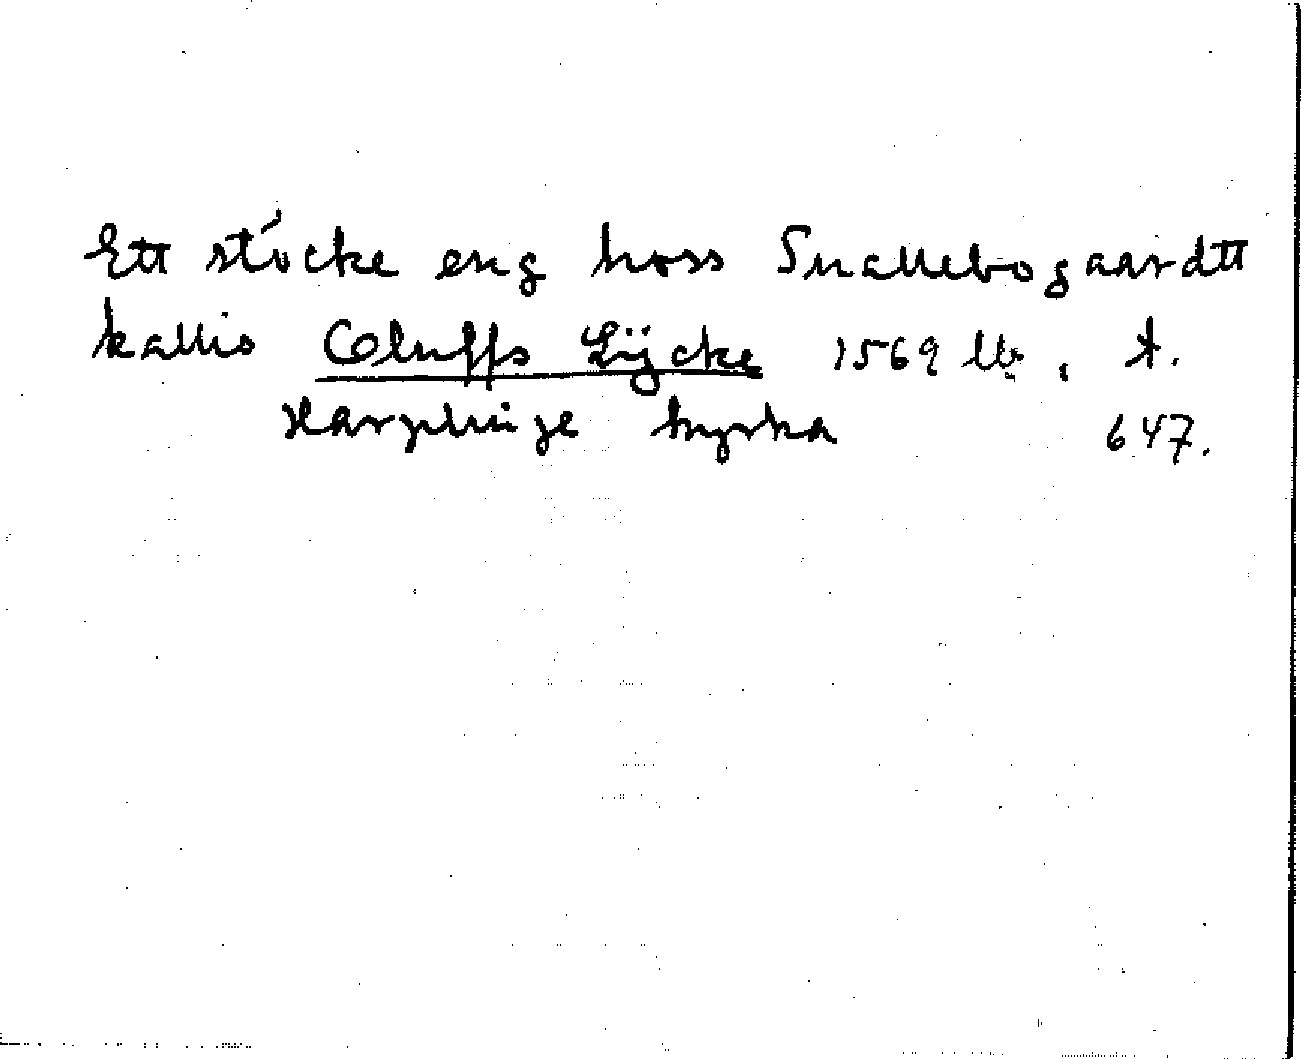 Ett stócke eng hoss Snallebogaardtt
kallis Oluffs Lÿcke 1569 Ub, t.
Harplinge kyrka 647.